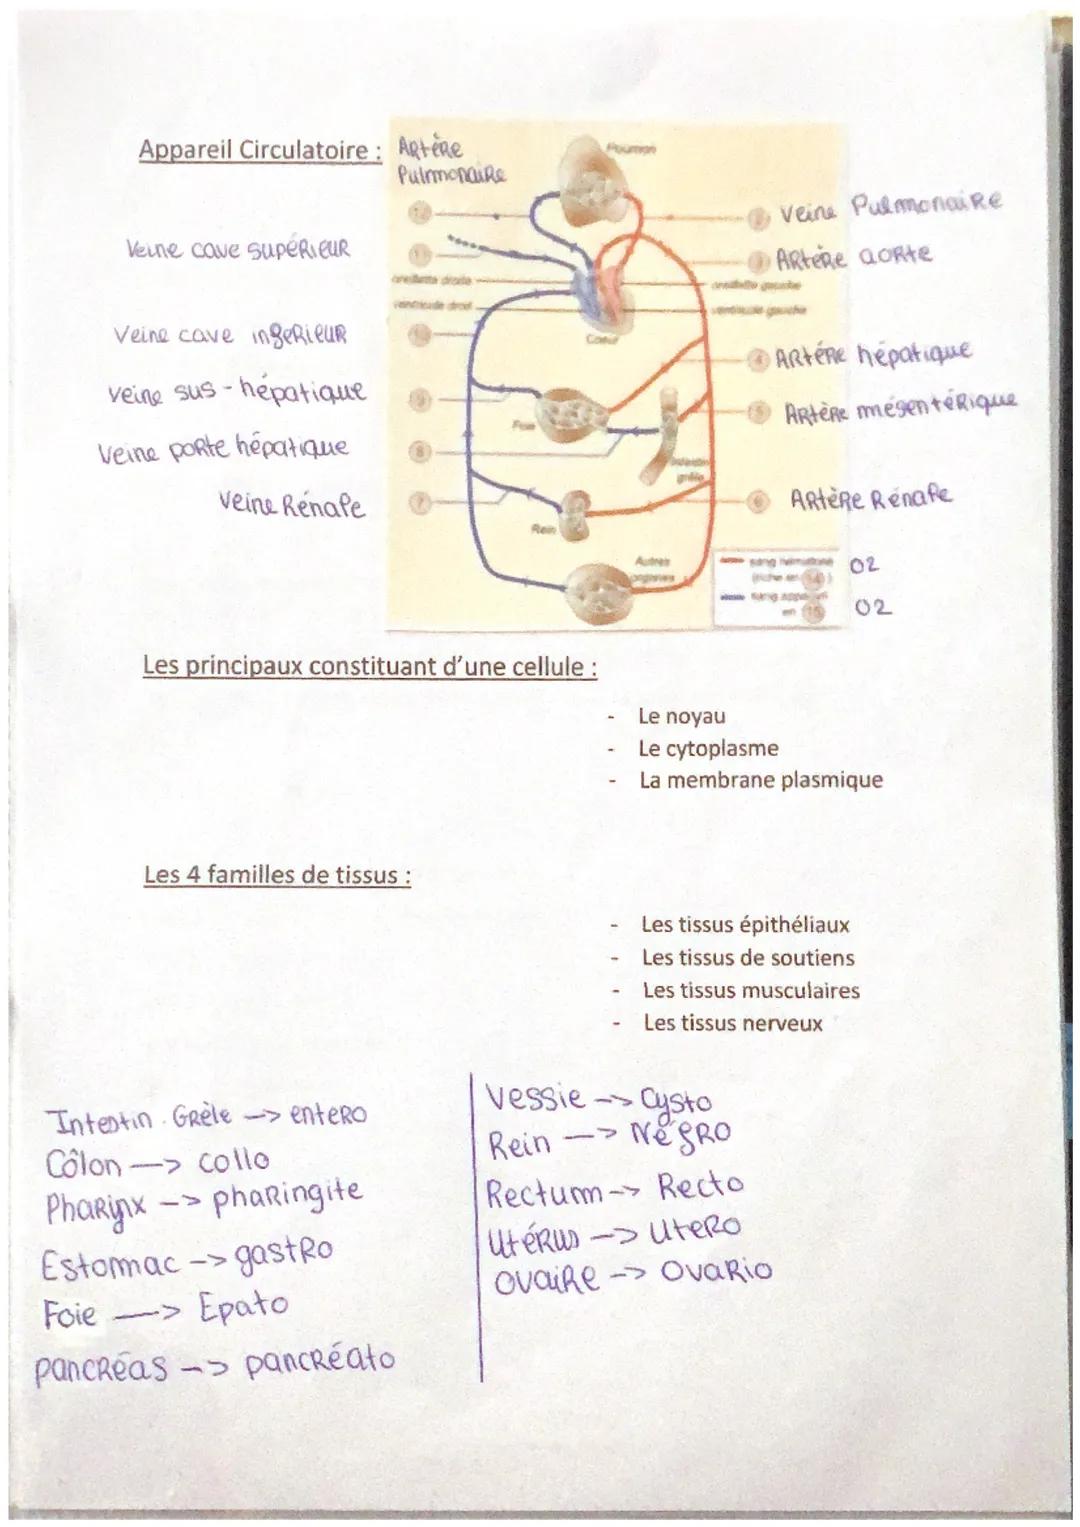 Appareil Circulatoire :
Artère
Pulmonaire
Poumon
12
2
Veine Pulmonaire
Veine cave supérieur
11
3
Artère aorte
oreillette droite
oreillette gauche
ventricule droit
ventricule gauche
Veine cave inferieur
10
Coeur
4
Artère hépatique
Veine sus-hépatique
9
5
Artère mésentérique
Foie
Veine porte hépatique
8
Intestin
grêle
Veine Rénale
7
6
Artère Rénale
Rein
Autres
organes
sang hématosé
(riche en 14)
O2
sang appauvri
en 15
O2
Les principaux constituant d'une cellule :
- Le noyau
- Le cytoplasme
- La membrane plasmique
Les 4 familles de tissus :
- Les tissus épithéliaux
- Les tissus de soutiens
- Les tissus musculaires
- Les tissus nerveux
Intestin Grèle --> entero
Côlon --> collo
Pharynx --> pharingite
Estomac --> gastro
Foie --> Epato
pancréas --> pancréato
Vessie --> Cysto
Rein --> Néfro
Rectum --> Recto
Utérus --> Utero
Ovaire --> Ovario